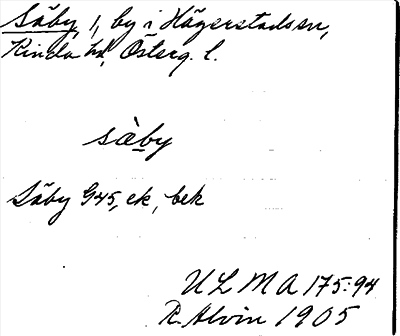 Säby 1, by i Hägerstads sn,
Kinda hd, Österg. l.
sàby
Säby G45, ek, bek
ULMA 175:94
R. Alvin 1905